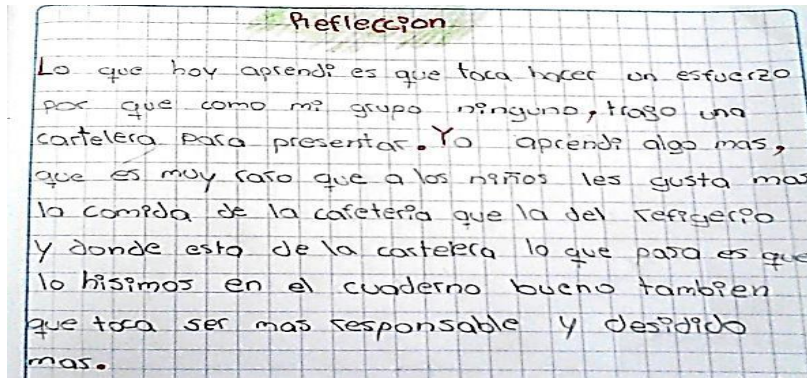 Refleccion
Lo que hoy aprendi es que toca hacer un esfuerzo
por que como mi grupo ninguno, trago una
cartelera para presentar. Yo aprendi algo mas,
que es muy raro que a los niños les gusta mas
la comida de la cafeteria que la del refigerio
y donde esta de la cartelera lo que pasa es que
lo hisimos en el cuaderno bueno tambien
que toca ser mas responsable y desidido
mas.